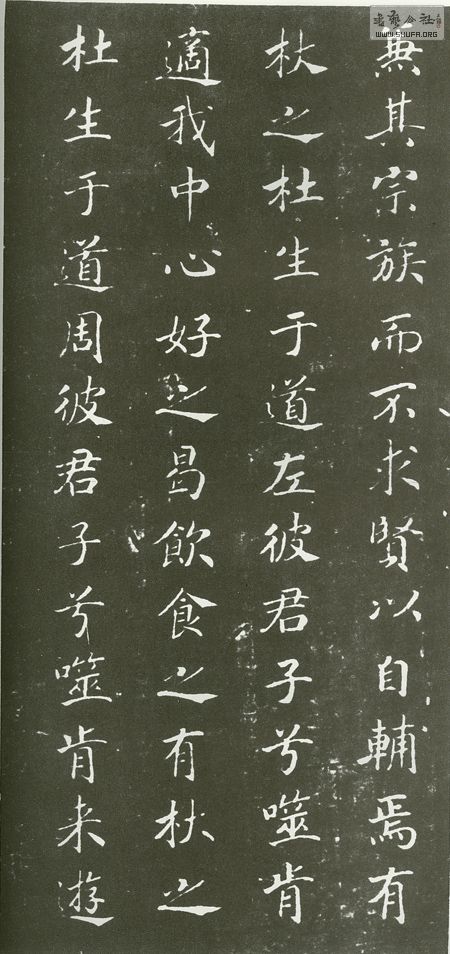 兼其宗族而不求賢以自輔焉有
杕之杜生于道左彼君子兮噬肯
適我中心好之曷飲食之有杕之
杜生于道周彼君子兮噬肯来遊
WWW.SYUFA.ORG